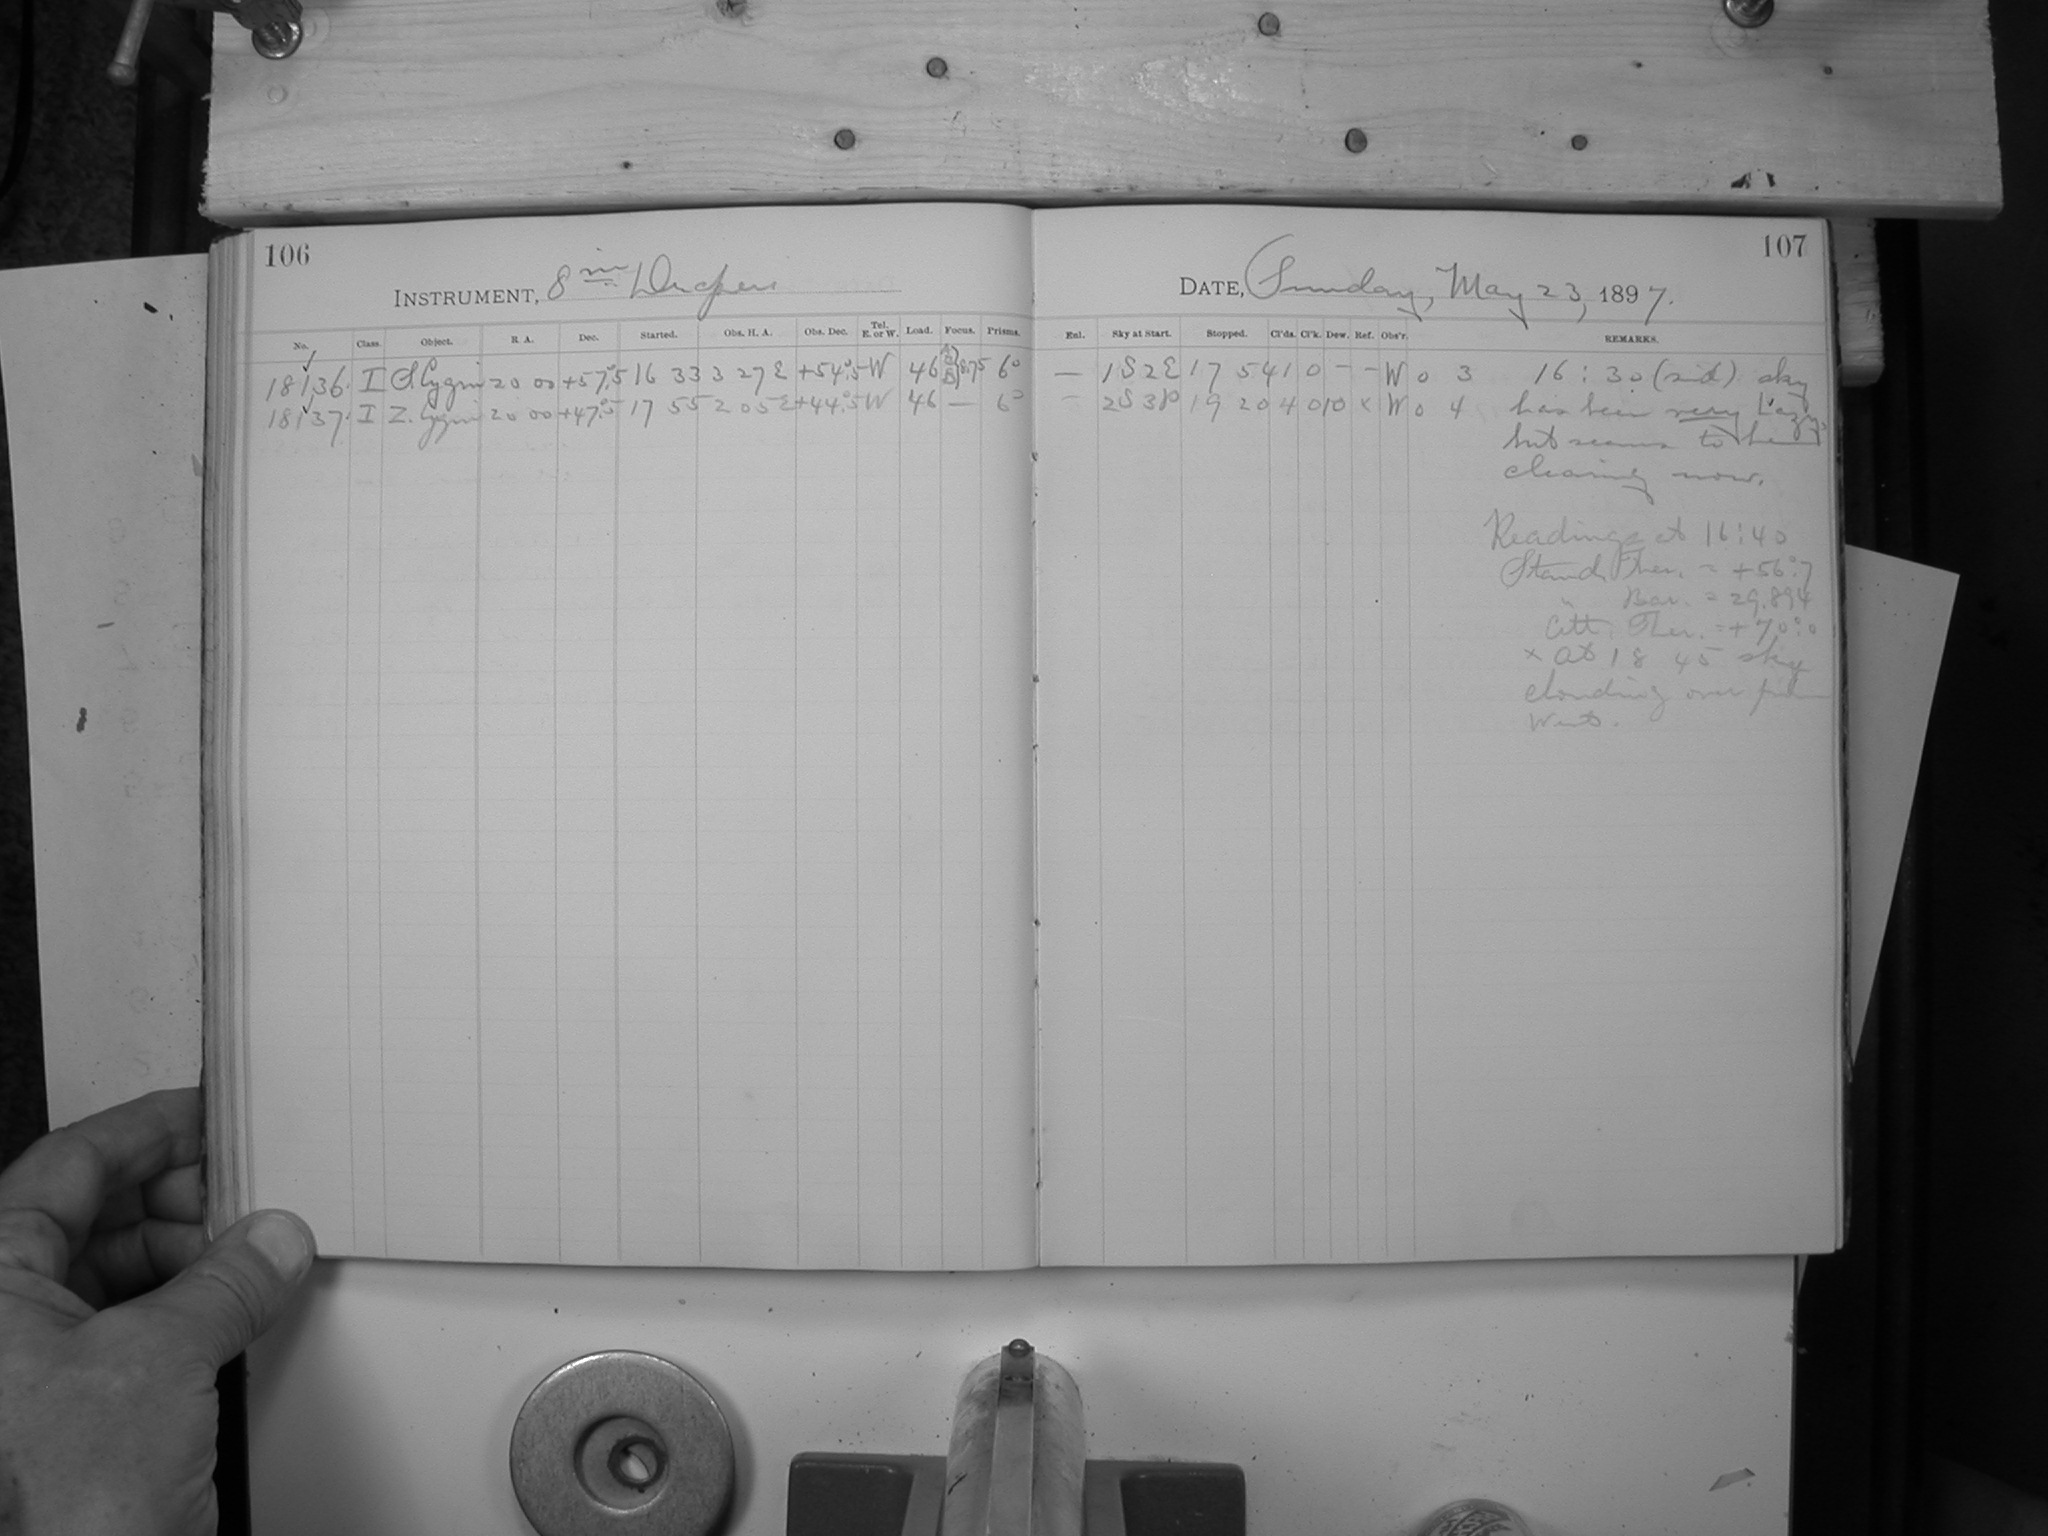 106
INSTRUMENT, 8 in Draper
No. Class. Object. R. A. Dec. Started. Obs. H. A. Obs. Dec. Tel. E. or W. Load. Focus. Prisms.
18136. I S. Cygni 20 00 +57°.5 16 33 3 27 E +54°.5 W 46 8.75 6°
18137. I Z. Cygni 20 00 +47°.5 17 55 2 05 E +44°.5 W 46 — 6°
107
DATE, Sunday, May 23, 1897.
Enl. Sky at Start. Stopped. Cl'ds. Cl'k. Dew. Ref. Obs'r. REMARKS.
— 1S2E 17 54 1 0 - - W 0 3 16:30 (sid) sky
— 2S3P 19 20 4 0 10 x W 0 4 has been very hazy
but seems to be
clearing now.
Readings at 16:40
Stand. Ther. = +56°.7
" Bar. = 29.894
Att. Ther. = +70°.0
x at 18 45 sky
clouding over from
West.